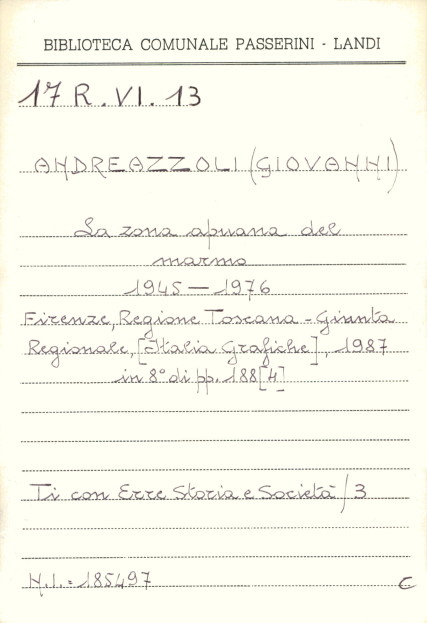 BIBLIOTECA COMUNALE PASSERINI - LANDI
17 R. VI. 13
ANDREAZZOLI (GIOVANNI)
La zona apuana del
marmo
1945 — 1976
Firenze, Regione Toscana - Giunta
Regionale, [Italia Grafiche], 1987
in 8° di pp. 188[4]
Ti con Erre Storia e Società / 3
N.I.= 185497 C